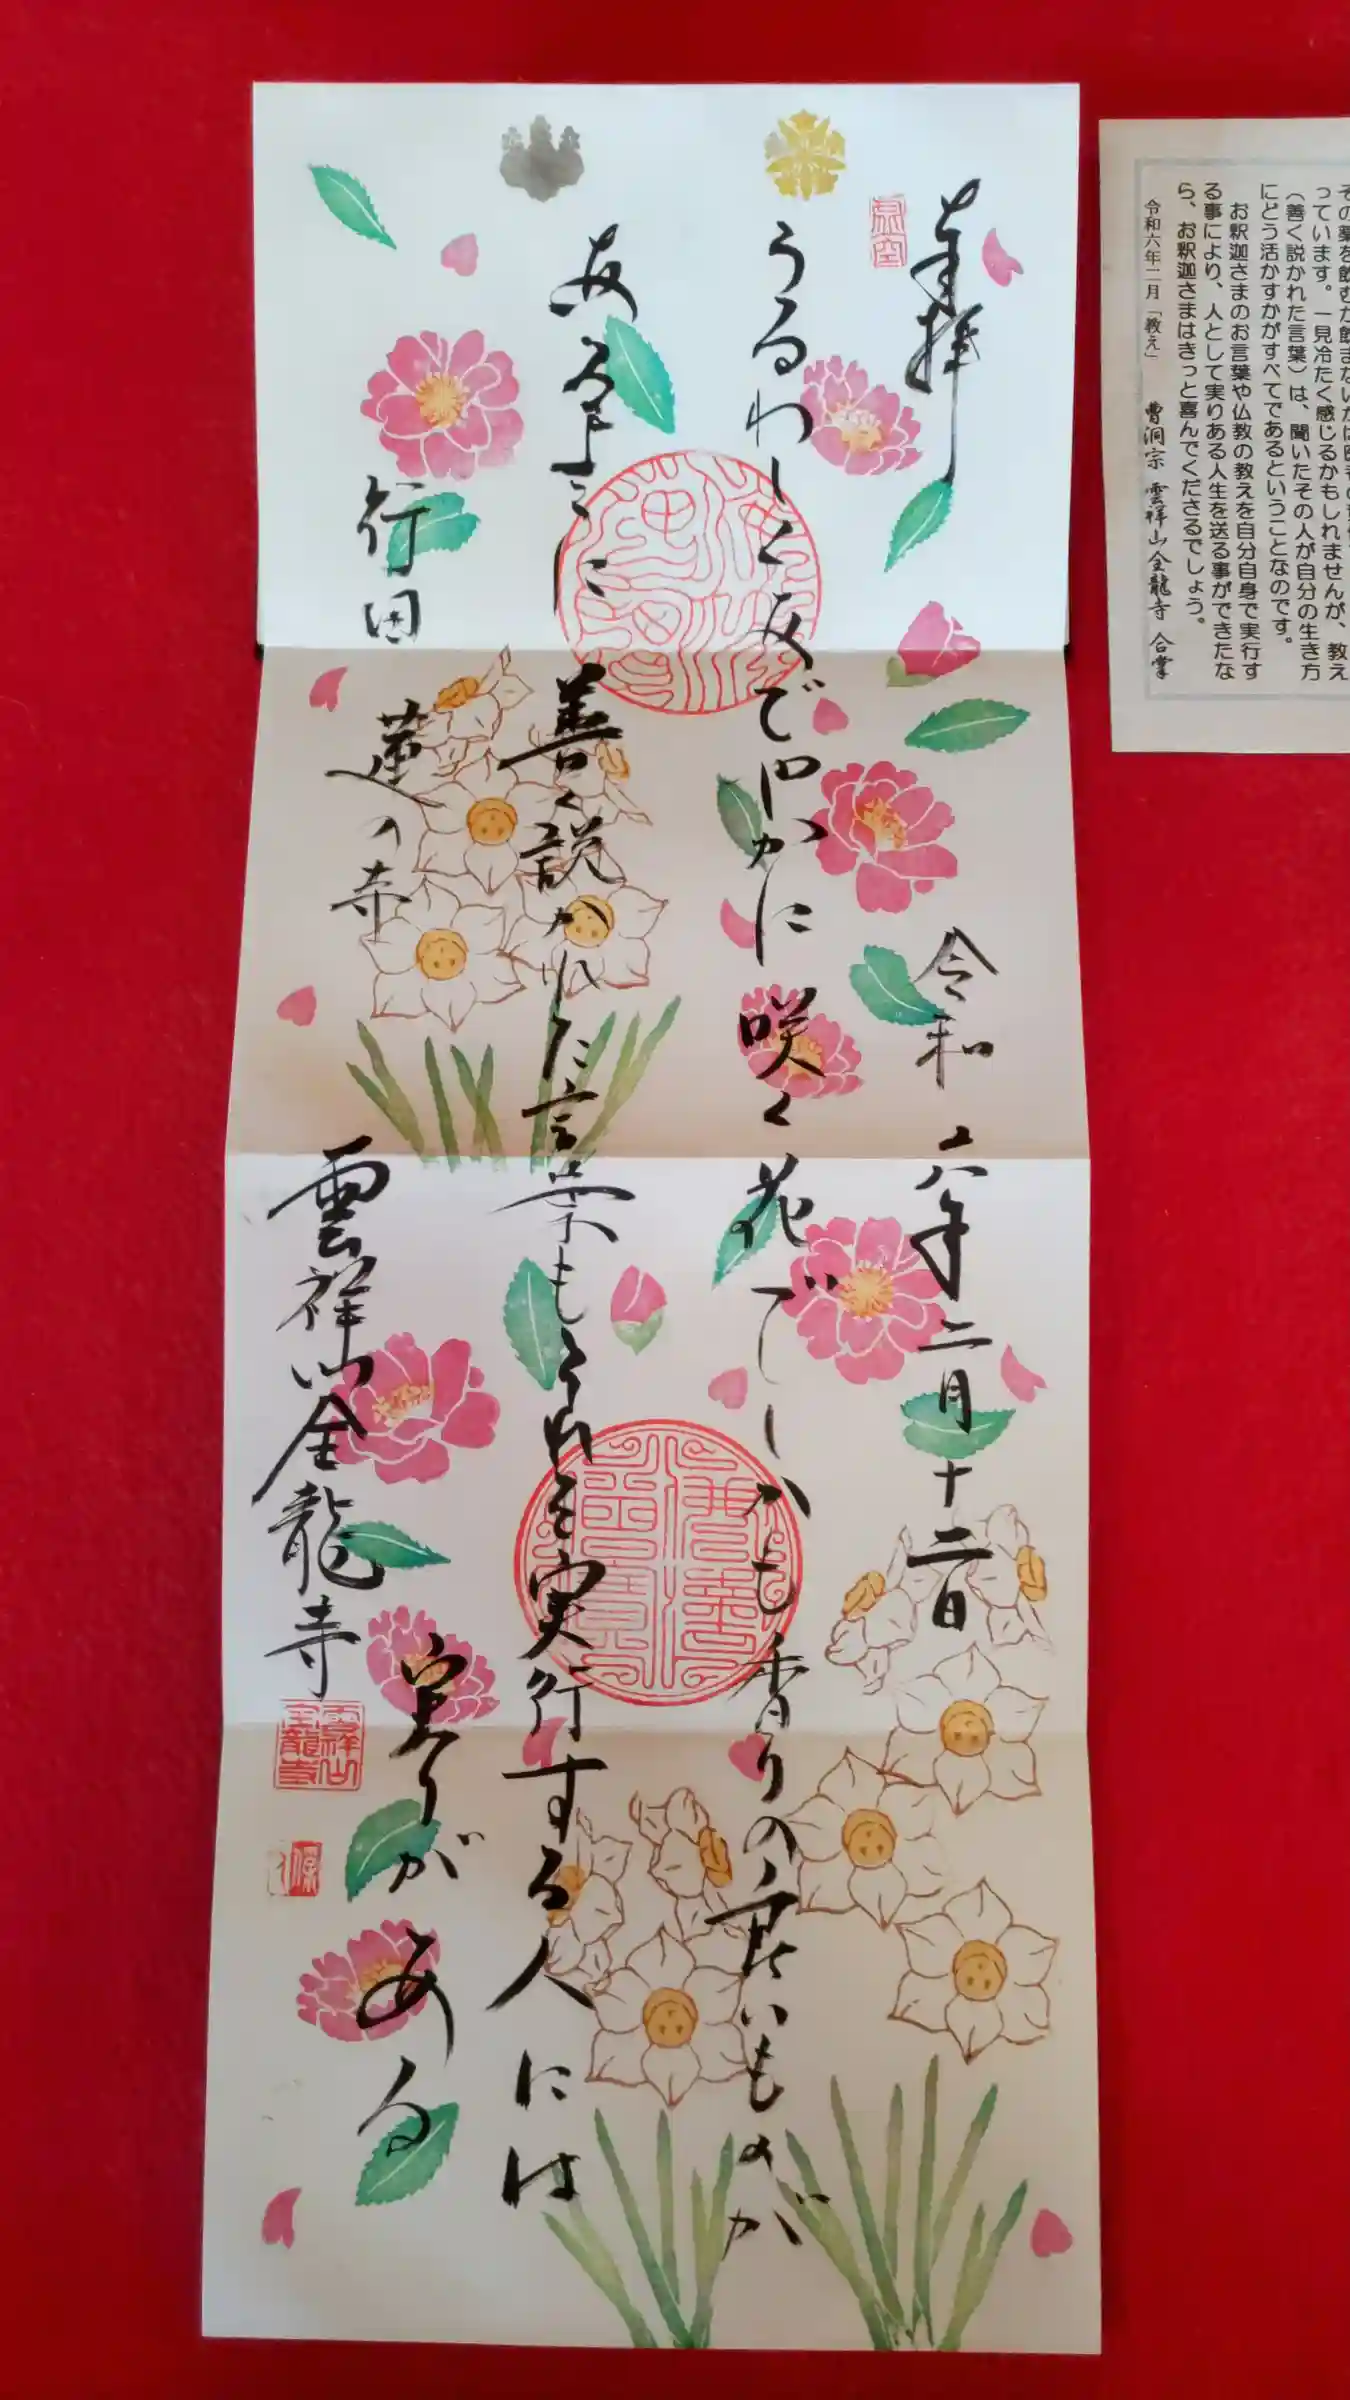 奉拝 令和六年二月十二日
うるわしくあでやかに咲く花でしかも香りの良いものが
あるように善く説かれた言葉もそれを実行する人には
実りがある
行田 蓮の寺
雲祥山全龍寺
雲祥山全龍寺
その薬を飲むか飲まないかは
っています。一見冷たく感じるかもしれませんが、教え
（善く説かれた言葉）は、聞いたその人が自分の生き方
にどう活かすかがすべてであるということなのです。
お釈迦さまのお言葉や仏教の教えを自分自身で実行す
る事により、人として実りある人生を送る事ができたな
ら、お釈迦さまはきっと喜んでくださるでしょう。
令和六年二月「教え」 曹洞宗 雲祥山全龍寺 合掌